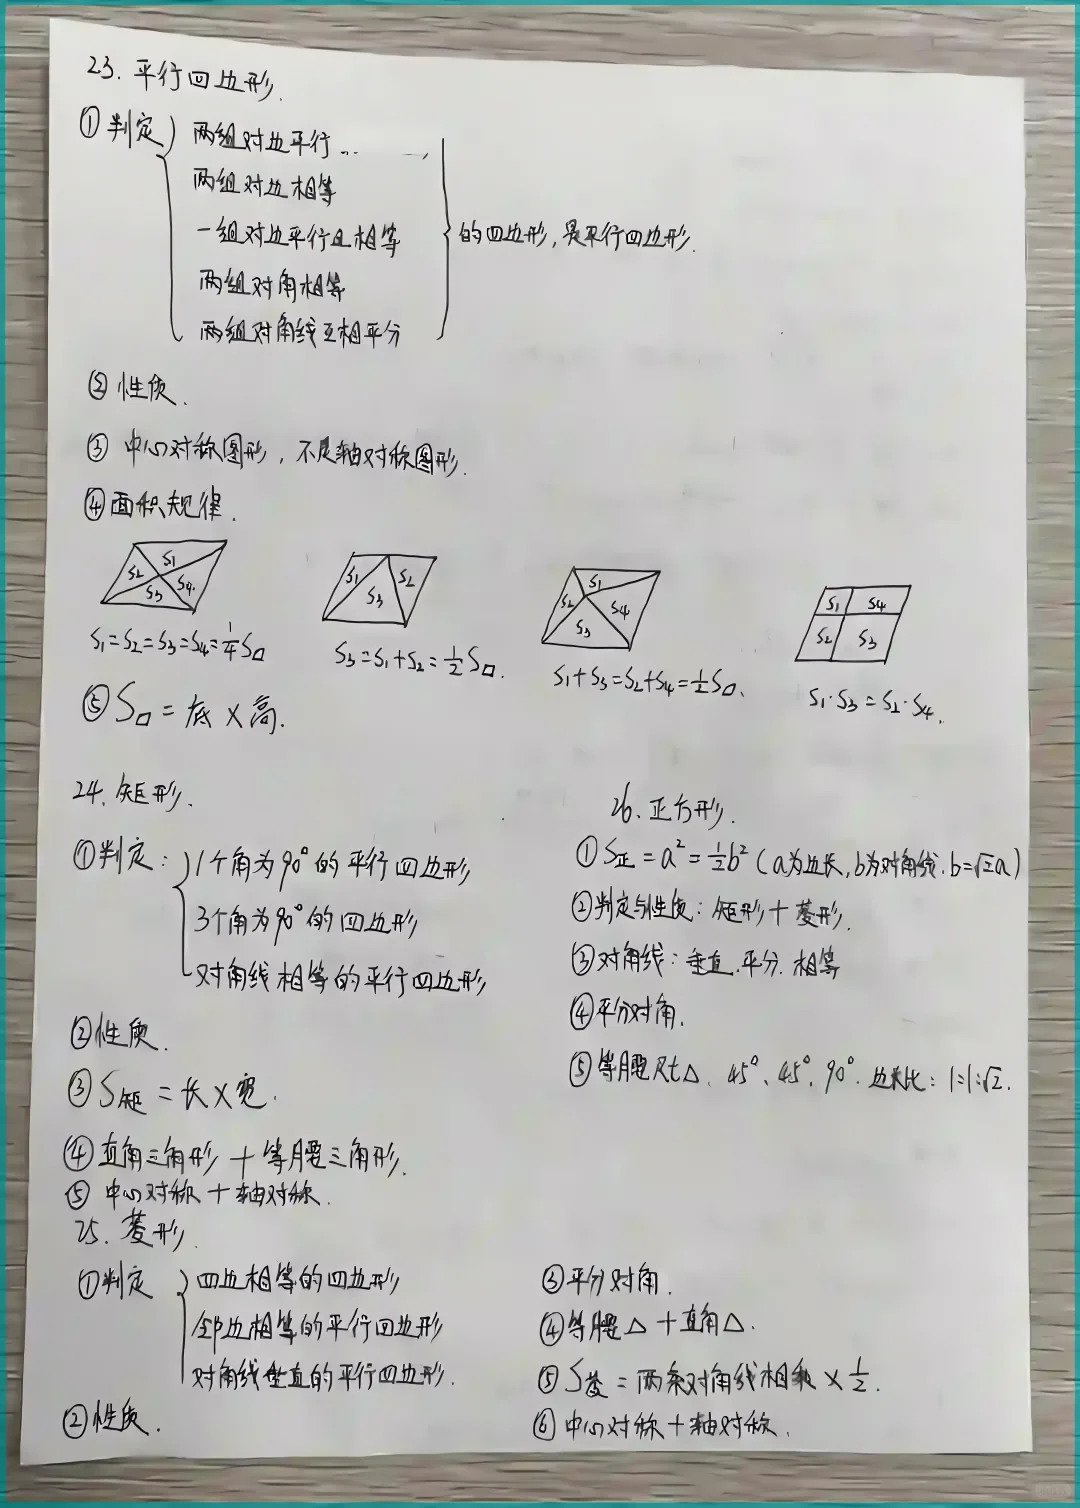 23. 平行四边形.
①判定
两组对边平行... ...,
两组对边相等
一组对边平行且相等
两组对角相等
两组对角线互相平分
的四边形,是平行四边形.
②性质.
③ 中心对称图形, 不是轴对称图形.
④面积规律.
S1 S2 S3 S4
S1 S2 S3
S1 S2 S3 S4
S1 S4 S2 S3
S1=S2=S3=S4=1/4S▱
S3=S1+S2=1/2S▱.
S1+S3=S2+S4=1/2S▱.
S1·S3=S2·S4.
⑤S▱=底×高.
24. 矩形.
①判定:
1个角为90°的平行四边形
3个角为90°的四边形
对角线相等的平行四边形
②性质.
③S矩=长×宽.
④直角三角形+等腰三角形.
⑤ 中心对称+轴对称.
26. 正方形.
①S正=a²=1/2b²(a为边长,b为对角线.b=√2a)
②判定与性质: 矩形+菱形.
③对角线: 垂直.平分.相等
④平分对角.
⑤等腰Rt△. 45°、45°、90°. 边长比: 1:1:√2.
25. 菱形.
①判定
四边相等的四边形
邻边相等的平行四边形
对角线垂直的平行四边形.
②性质.
③平分对角.
④等腰△+直角△.
⑤S菱=两条对角线相乘×1/2.
⑥ 中心对称+轴对称.